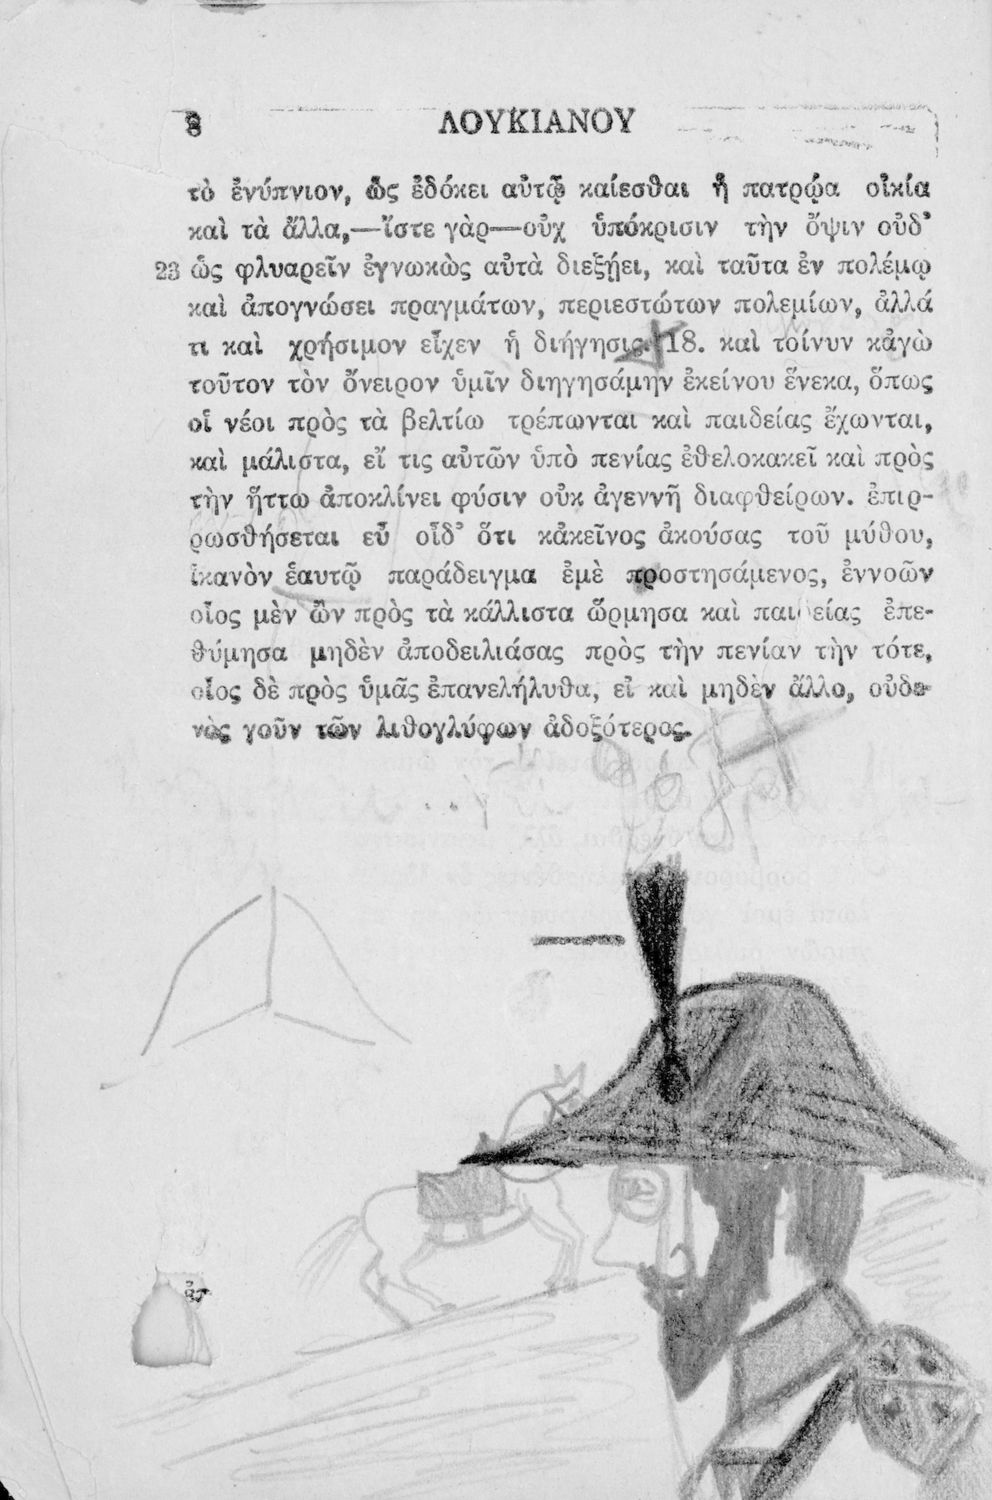 8 ΛΟΥΚΙΑΝΟΥ
τὸ ἐνύπνιον, ὡς ἐδόκει αὐτῷ καίεσθαι ἡ πατρῴα οἰκία
καὶ τὰ ἄλλα,—ἴστε γὰρ—οὐχ ὑπόκρισιν τὴν ὄψιν οὐδ’
23 ὡς φλυαρεῖν ἐγνωκὼς αὐτὰ διεξῄει, καὶ ταῦτα ἐν πολέμῳ
καὶ ἀπογνώσει πραγμάτων, περιεστώτων πολεμίων, ἀλλά
τι καὶ χρήσιμον εἶχεν ἡ διήγησις. 18. καὶ τοίνυν κἀγὼ
τοῦτον τὸν ὄνειρον ὑμῖν διηγησάμην ἐκείνου ἕνεκα, ὅπως
οἱ νέοι πρὸς τὰ βελτίω τρέπωνται καὶ παιδείας ἔχωνται,
καὶ μάλιστα, εἴ τις αὐτῶν ὑπὸ πενίας ἐθελοκακεῖ καὶ πρὸς
τὴν ἥττω ἀποκλίνει φύσιν οὐκ ἀγεννῆ διαφθείρων. ἐπιρ-
ρωσθήσεται εὖ οἶδ’ ὅτι κἀκεῖνος ἀκούσας τοῦ μύθου,
ἱκανὸν ἑαυτῷ παράδειγμα ἐμὲ προστησάμενος, ἐννοῶν
οἷος μὲν ὢν πρὸς τὰ κάλλιστα ὥρμησα καὶ παιδείας ἐπε-
θύμησα μηδὲν ἀποδειλιάσας πρὸς τὴν πενίαν τὴν τότε,
οἷος δὲ πρὸς ὑμᾶς ἐπανελήλυθα, εἰ καὶ μηδὲν ἄλλο, οὐδε-
νὸς γοῦν τῶν λιθογλύφων ἀδοξότερος.